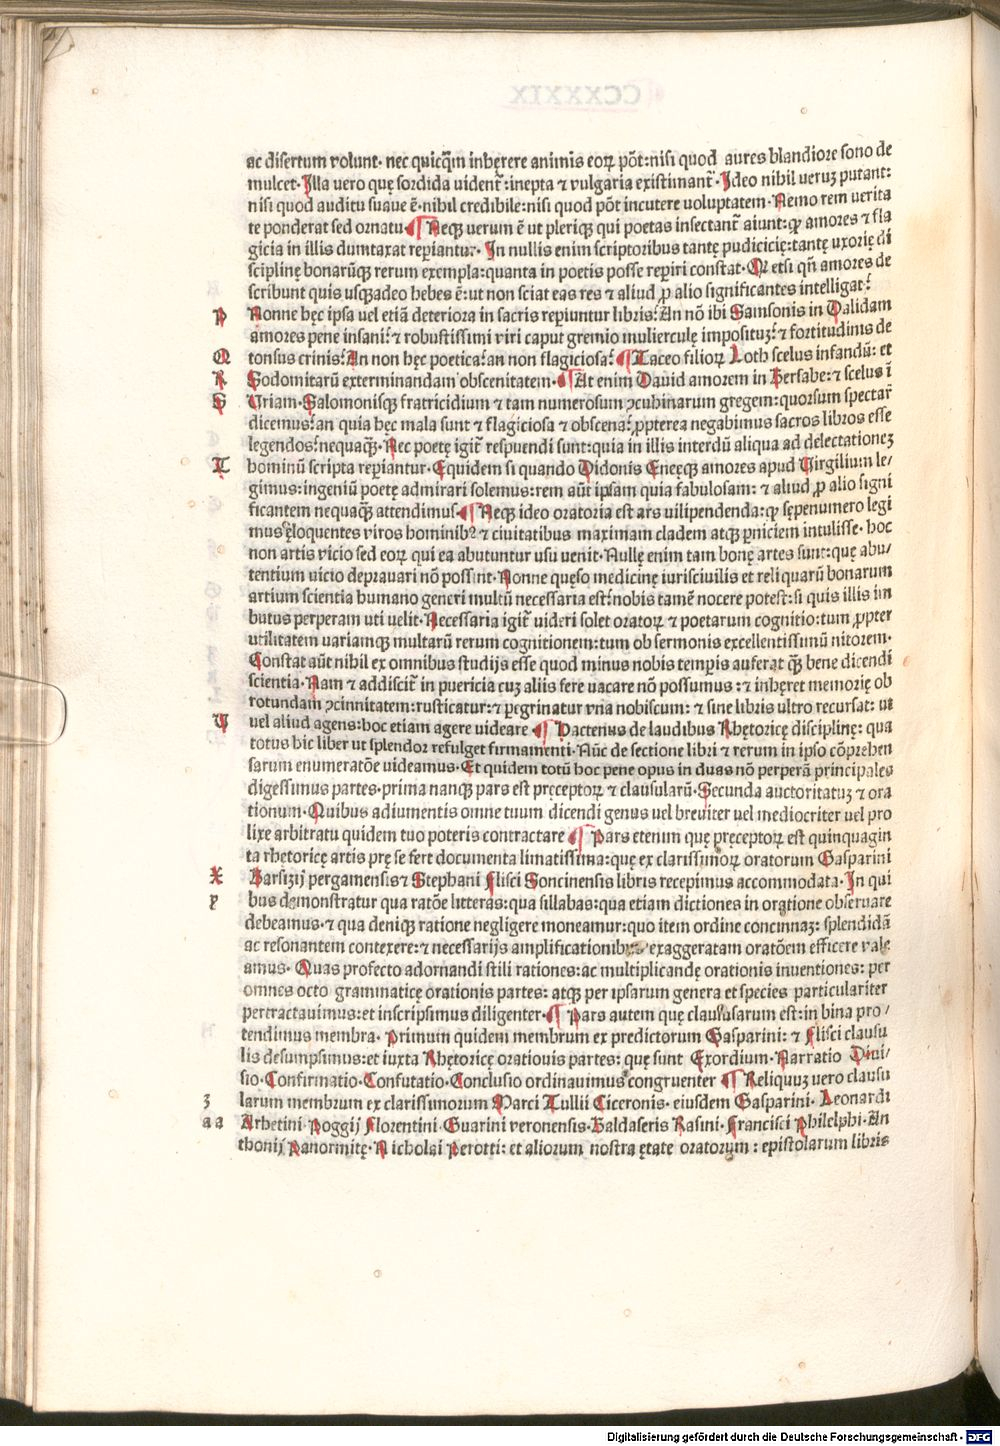 ac disertum volunt· nec quicq̄m inhęrere animis eoꝝ pōt:nisi quod aures blandiore sono de
mulcet·Illa vero quę sordida uident̄:inepta ⁊ vulgaria existimant̄·Ideo nihil veruꝫ putant:
nisi quod auditu suaue ē·nihil credibile:nisi quod pōt incutere voluptatem·Nemo rem verita
te ponderat sed ornatu ¶ Neqꝫ verum ē ut pleriqꝫ qui poetas insectant̄ aiunt:ꝙ amores ⁊ fla
gicia in illis dumtaxat reperiantur· In nullis enim scriptoribus tantę pudicicię:tantę uxorię di
sciplinę bonarūqꝫ rerum exempla:quanta in poetis posse reperiri constat·Q etsi qn̄ amores de
scribunt quis usqꝫadeo hebes ē:ut non sciat eas res ⁊ aliud ꝓ alio significantes intelligat?
P Nonne hęc ipsa uel etiā deteriora in sacris reperiuntur libris?An nō ibi Samsonis in Dalidam
amores pene insani?⁊ robustissimi viri caput gremio muliercule impositum?⁊ fortitudinis de
Q tonsus crinis?An non hęc poetica?an non flagiciosa? ¶ Taceo filioꝝ Loth scelus infandū: et
R Sodomitarū exterminandam obscenitatem· ¶ At enim Dauid amorem in Bersabe:⁊ scelus ī
S Vriam·Salomonisqꝫ fratricidium ⁊ tam numerosum ꝯcubinarum gregem:quorsum spectar̄
dicemus?an quia hęc mala sunt ⁊ flagiciosa ⁊ obscena? ꝓpterea negabimus sacros libros esse
legendos?nequaqꝫ· Nec poetę igit̄ respuendi sunt:quia in illis interdū aliqua ad delectationeꝫ
T hominū scripta reperiantur·Equidem si quando Didonis Enęęqꝫ amores apud Virgilium le/
gimus:ingeniū poetę admirari solemus:rem aūt ipsam quia fabulosam: ⁊ aliud ꝓ alio signi
ficantem nequaqꝫ attendimus· ¶ Neqꝫ ideo oratoria est ars uilipendenda:ꝙ sępenumero legi
mus eloquentes viros hominibꝰ ⁊ ciuitatibus maximam cladem atqꝫ perniciem intulisse· hoc
non artis vicio sed eoꝝ qui ea abutuntur usu uenit·Nullę enim tam bonę artes sunt:quę abu/
tentium uicio deprauari nō possint·Nonne quęso medicinę iurisciuilis et reliquarū bonarum
artium scientia humano generi multū necessaria est?nobis tamē nocere potest:si quis illis im
butus perperam uti uelit·Necessaria igit̄ videri solet oratoꝝ ⁊ poetarum cognitio:tum ꝓpter
utilitatem variamqꝫ multarū rerum cognitionem:tum ob sermonis excellentissimū nitorem·
Constat aūt nihil ex omnibus studijs esse quod minus nobis temporis auferat qꝫ bene dicendi
scientia·Nam ⁊ addiscit̄ in puericia cuꝫ aliis fere uacare nō possumus:⁊ inhęret memorię ob
rotundam ꝯcinnitatem:rusticatur:⁊ peregrinatur vna nobiscum:⁊ sine libris ultro recursat: ut
V uel aliud agens:hoc etiam agere uideare ¶ Hactenus de laudibus Rhętoricę disciplinę: qua
totus hic liber ut splendor refulget firmamenti·Nūc de sectione libri ⁊ rerum in ipso cōprehen
sarum enumeratōe uideamus·Et quidem totū hoc pene opus in duas nō perperā principales
digessimus partes·prima nanqꝫ pars est pręceptoꝝ ⁊ clausularū·Secunda auctoritatuꝫ ⁊ ora
tionum·Quibus adiumentis omne tuum dicendi genus uel breuiter uel mediocriter uel pro
lixe arbitratu quidem tuo poteris contractare ¶ Pars etenim quę pręceptoꝝ est quinquagin
ta rhetoricę artis prę se fert documenta limatissima:quę ex clarissimoꝝ oratorum Gasparini
X Barsizij pergamensis ⁊ Stephani Flisci Soncinensis libris recepimus accommodata·In qui
y bus demonstratur qua ratōe litteras:qua sillabas:qua etiam dictiones in oratione obseruare
debeamus·⁊ qua deniqꝫ ratione negligere moneamur:quo item ordine concinnaꝫ: splendidā
ac resonantem contexere:⁊ necessarijs amplificationibus exaggeratam oratōem efficere vale
amus· Quas profecto adornandi stili rationes:ac multiplicandę orationis inuentiones: per
omnes octo grammaticę orationis partes: atqꝫ per ipsarum genera et species particulariter
pertractauimus:et inscripsimus diligenter· ¶ Pars autem quę clausularum est:in bina pro/
tendimus membra· Primum quidem membrum ex predictorum Gasparini: ⁊ Flisci clausu
lis desumpsimus:et iuxta Rhętoricę orationis partes: quę sunt Exordium·Narratio Diui/
sio·Confirmatio·Confutatio·Conclusio ordinauimus congruenter ¶ Reliquuꝫ vero clausu
z larum membrum ex clarissimorum Marci Tullii Ciceronis· eiusdem Gasparini· Leonardi
aa Arhetini·Poggij Florentini·Guarini veronensis·Baldaseris Rasini·Francisci Philelphi·An
thonij Panormitę·Nicholai Perotti: et aliorum nostra ętate oratorum: epistolarum libris
Digitalisierung gefördert durch die Deutsche Forschungsgemeinschaft · DFG